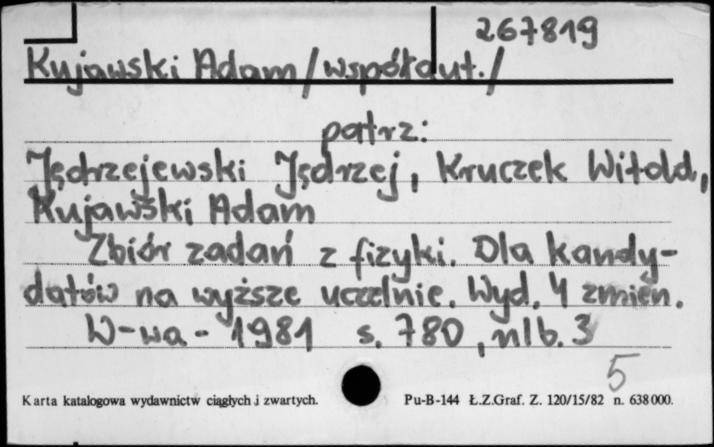 267819
Kujawski Adam /współaut./
patrz:
Jędrzejewski Jędrzej, Kruczek Witold,
Kujawski Adam
Zbiór zadań z fizyki. Dla kandy-
datów na wyższe uczelnie. Wyd. 4 zmien.
W-wa - 1981 s. 780, nlb. 3
5
Karta katalogowa wydawnictw ciągłych i zwartych. Pu-B-144 Ł.Z.Graf. Z. 120/15/82 n. 638000.